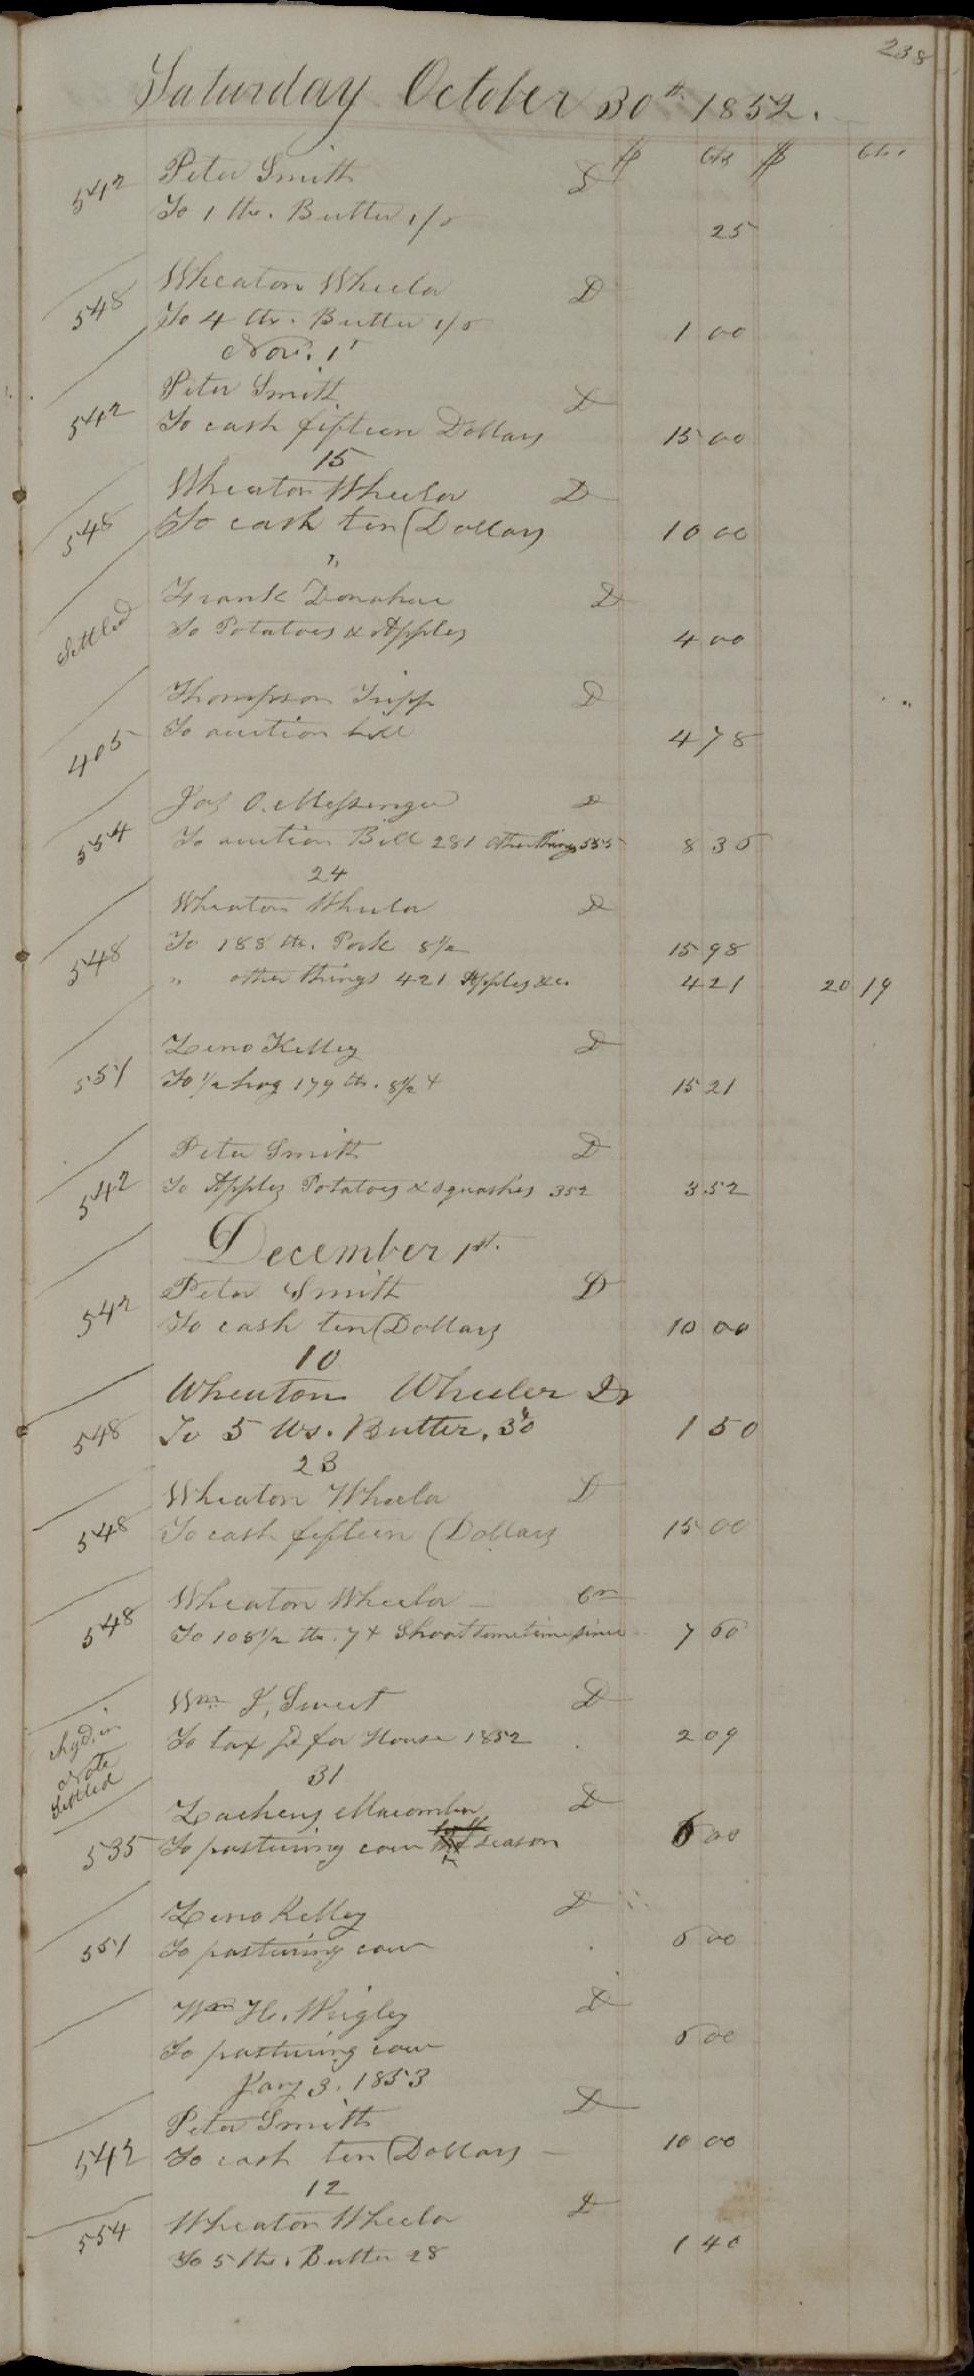 238
Saturday October 30th 1852.
$ Cts $ Cts.
542 Peter Smith D
To 1 lb. Butter 1/6 25
548 Wheaton Wheeler D
To 4 lbs. Butter 1/6 1 00
Nov. 1st
Peter Smith D
542 To cash fifteen Dollars 15 00
15
Wheaton Wheeler D
548 To cash ten Dollars 10 00
"
Frank Donahue D
Settled To Potatoes & Apples 4 00
Thompson Tripp D
405 To auction bill 4 78
Jas O. Messenger D
554 To auction Bill 281 other things 555 8 36
24
Wheaton Wheeler D
548 To 188 lbs. Pork 8½ 15 98
" other things 421 Apples &c. 4 21 20 19
Zeno Kelley D
551 To ½ hog 179 lbs. 8½ 15 21
Peter Smith D
542 To Apples Potatoes & squashes 352 3 52
December 1st.
Peter Smith D
542 To cash ten Dollars 10 00
10
Wheaton Wheeler Dr
548 To 5 lbs. Butter, 30 1 50
23
Wheaton Wheeler D
548 To cash fifteen Dollars 15 00
Wheaton Wheeler Cr
548 To 108½ lbs. 7 Shoat sometime since 7 60
Wm J. Sweet D
chgd. in To tax pd for House 1852 2 09
Note
Settled
31
Zacheus Macomber D
535 To pasturing cow season 6 00
Zeno Kelley D
551 To pasturing cow 6 00
Wm H. Wrigley D
To pasturing cow 6 00
Jany 3. 1853
Peter Smith D
542 To cash ten Dollars 10 00
12
Wheaton Wheeler D
554 To 5 lbs. Butter 28 1 40